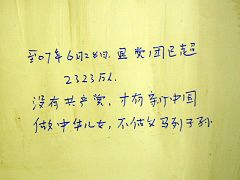 到07年6月28日.退党团已超
2323万人.
没有共产党，才有新中国
做中华儿女，不做父马列子孙